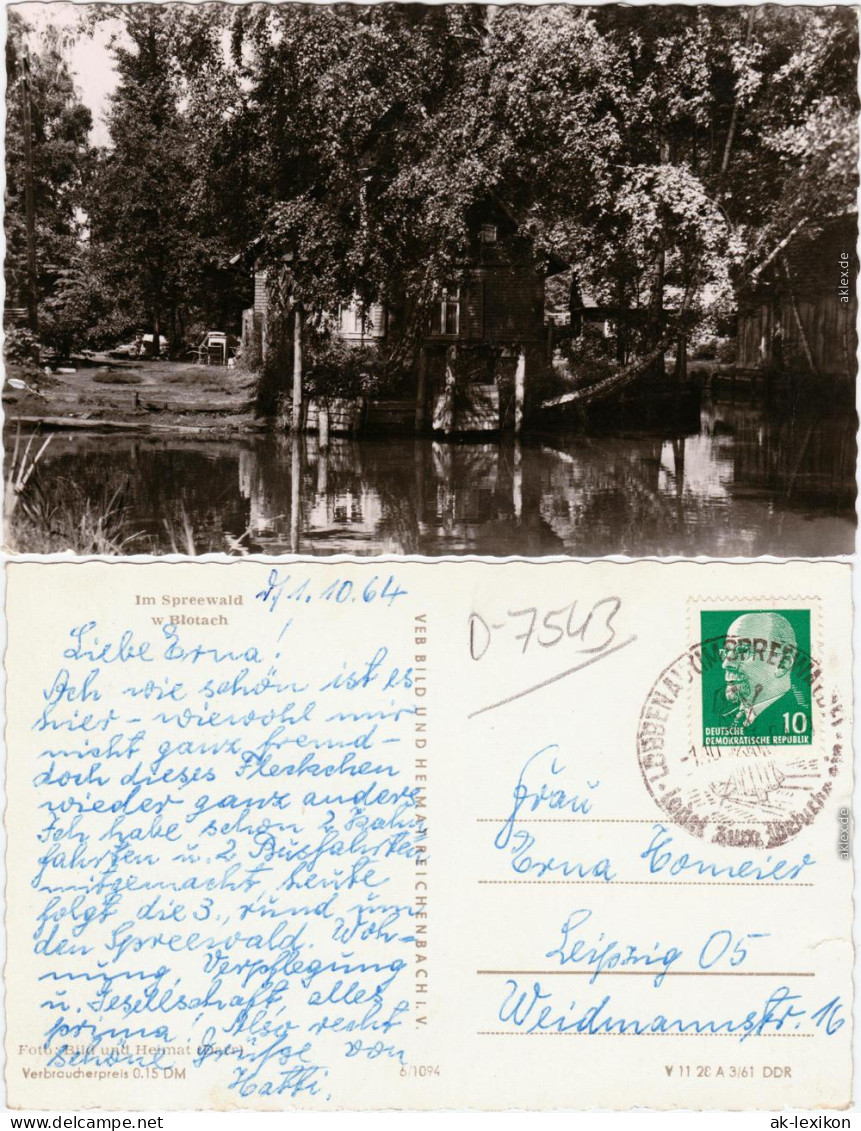 aklex.de
Im Spreewald
w Blotach
1.10.64
Liebe Erna!
Ach wie schön ist es
hier - wiewohl mir
nicht ganz fremd -
doch dieses Fleckchen
wieder ganz anders.
Ich habe schon 2 Kahn
fahrten u. 2 Busfahrten
mitgemacht, heute
folgt die 3., rund um
den Spreewald. Woh-
nung, Verpflegung
u. Gesellschaft, alles
prima! Also recht
schöne Grüße von
Foto: Bild und Heimat
Verbraucherpreis 0.15 DM
6/1094
VEB BILD UND HEIMAT REICHENBACH I. V.
D-7543
10
DEUTSCHE
DEMOKRATISCHE REPUBLIK
LÜBBENAU
SPREEWALD
ladet zum Besuch ein
Frau
Erna Homeier
Leipzig O5
Weidmannstr. 16
V 11 28 A 3/61 DDR
aklex.de
www.ansichtskarten-lexikon.de
ak-lexikon